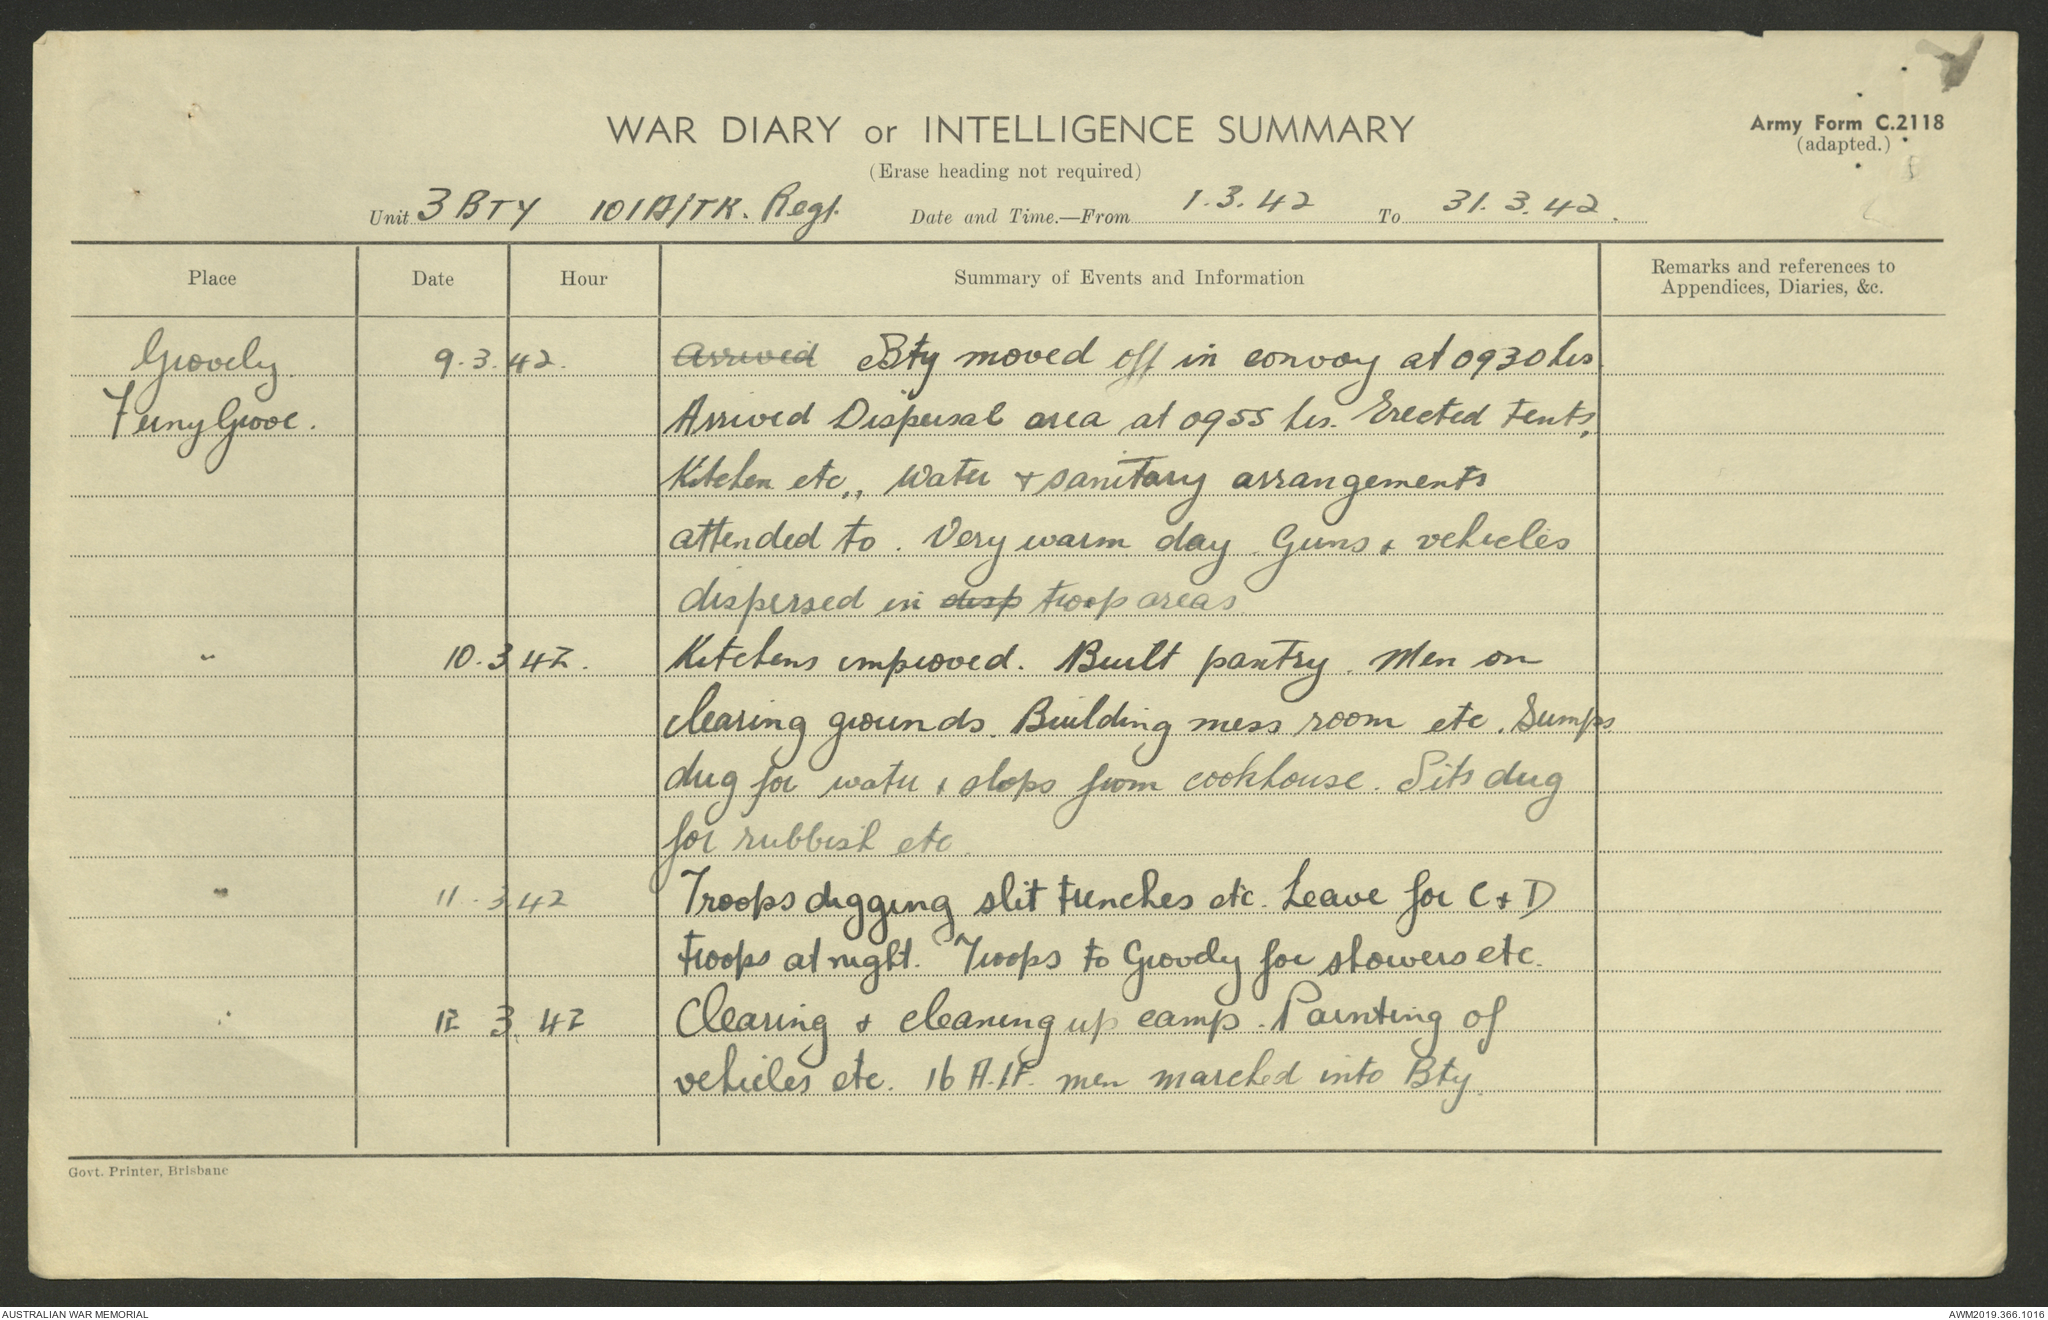 WAR DIARY or INTELLIGENCE SUMMARY
Army Form C.2118
(adapted.)
(Erase heading not required)
Unit 3 BTY 101 A/TK. Regt. Date and Time.—From 1.3.42 To 31.3.42.
Place Date Hour Summary of Events and Information Remarks and references to
Appendices, Diaries, &c.
Grovely 9.3.42. Arrived Bty moved off in convoy at 0930 hrs.
Ferny Grove. Arrived Dispersal area at 0955 hrs. Erected tents,
Kitchen etc., water + sanitary arrangements
attended to. Very warm day. Guns + vehicles
dispersed in disp troop areas
" 10.3.42. Kitchens improved. Built pantry. Men on
clearing grounds. Building mess room etc. Sumps
dug for water + slops from cookhouse. Pits dug
for rubbish etc.
" 11.3.42 Troops digging slit trenches etc. Leave for C + D
troops at night. Troops to Grovely for showers etc.
" 12 3 42 Clearing + cleaning up camp. Painting of
vehicles etc. 16 A.I.F. men marched into Bty.
Govt. Printer, Brisbane
AUSTRALIAN WAR MEMORIAL AWM2019.366.1016